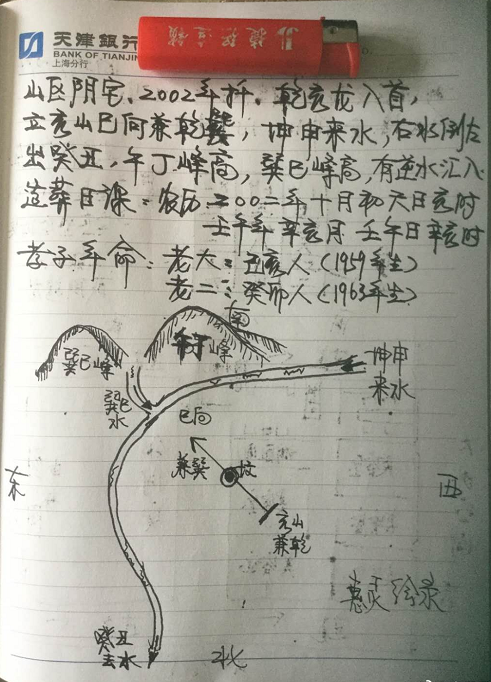 天津銀行
BANK OF TIANJIN
上海分行
山区阴宅、2002年扦。乾亥龙入首，
立亥山巳向兼乾巽，坤申来水，右水倒左
出癸丑，午丁峰高，巽巳峰高，有逆水汇入
造葬日课：农历二00二年十月初六日亥时
壬午年 辛亥月 壬午日 辛亥时
孝子年命：老大：己亥人（1959年生）
老二：癸卯人（1963年生）
南
午丁峰
巽巳峰
坤申
来水
巽巳
水
巳向
兼巽
坟
东
西
亥山
兼乾
癸丑
去水
北